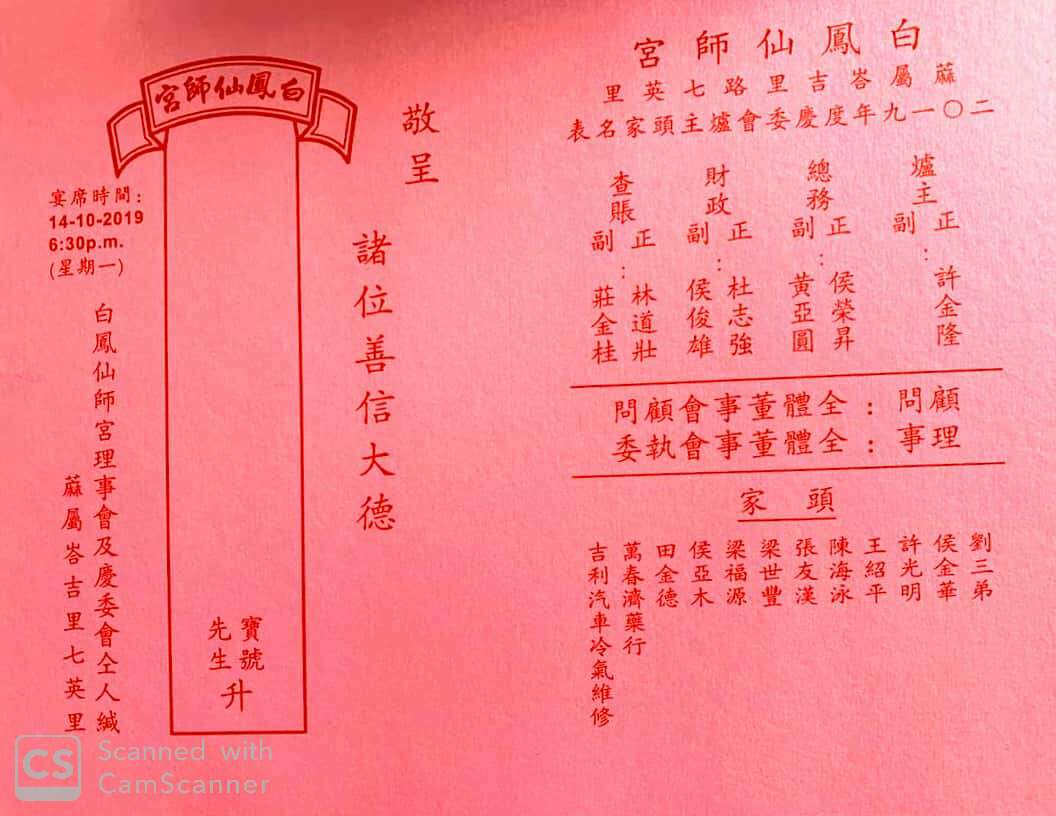 白鳳仙師宮
蔴屬峇吉里路七英里
二〇一九年度慶委會爐主頭家名表
爐主
正
副
:
許金隆
總務
正
副
:
侯榮昇
黃亞圓
財政
正
副
:
杜志強
侯俊雄
查賬
正
副
:
林道壯
莊金桂
顧問:全體董事會顧問
理事:全體董事會執委
頭家
劉三弟
侯金華
許光明
王紹平
陳海泳
張友漢
梁世豐
梁福源
侯亞木
田金德
萬春濟藥行
吉利汽車冷氣維修
敬呈
諸位善信大德
白鳳仙師宮
寶號
先生
升
宴席時間:
14-10-2019
6:30p.m.
(星期一)
白鳳仙師宮理事會及慶委會仝人緘
蔴屬峇吉里七英里
CS
Scanned with
CamScanner